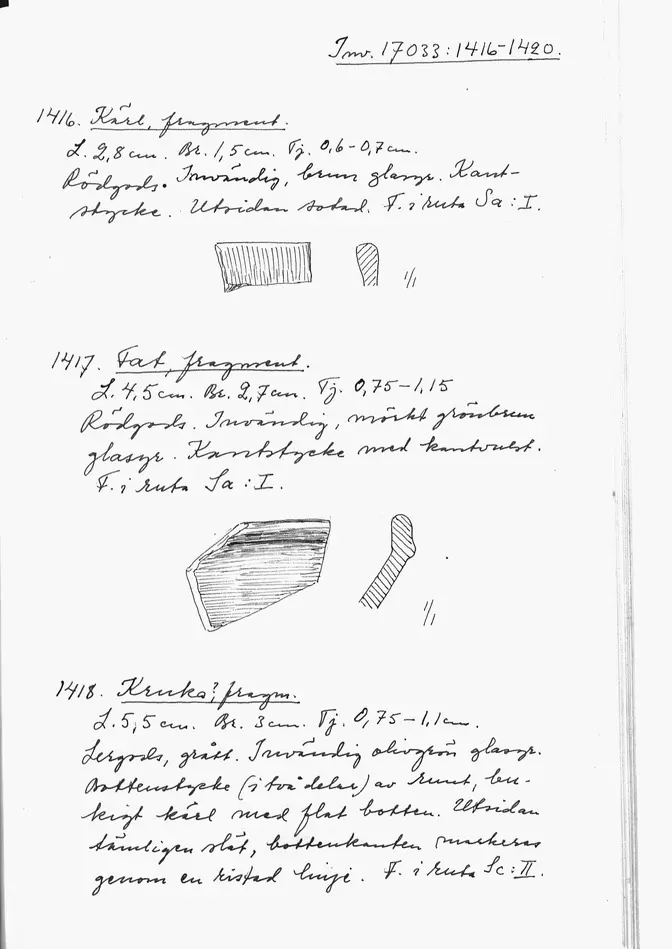 Inv. 17033:1416-1420.
1416. Kärl, fragment.
L. 2,8 cm. Br. 1,5 cm. Tj. 0,6-0,7 cm.
Rödgods. Invändig, brun glasyr. Kant-
stycke. Utsidan sotad. F. i ruta Sa:I.
1/1
1417. Fat, fragment.
L. 4,5 cm. Br. 2,7 cm. Tj. 0,75-1,15
Rödgods. Invändig, mörkt grönbrun
glasyr. Kantstycke med kantvulst.
F. i ruta Sa:I.
1/1
1418. Kruka?, fragm.
L. 5,5 cm. Br. 3 cm. Tj. 0,75-1,1 cm.
Lergods, grått. Invändig olivgrön glasyr.
Bottenstycke (i två delar) av runt, bu-
kigt kärl med flat botten. Utsidan
tämligen slät, bottenkanten markeras
genom en ristad linje. F. i ruta Sc:II.